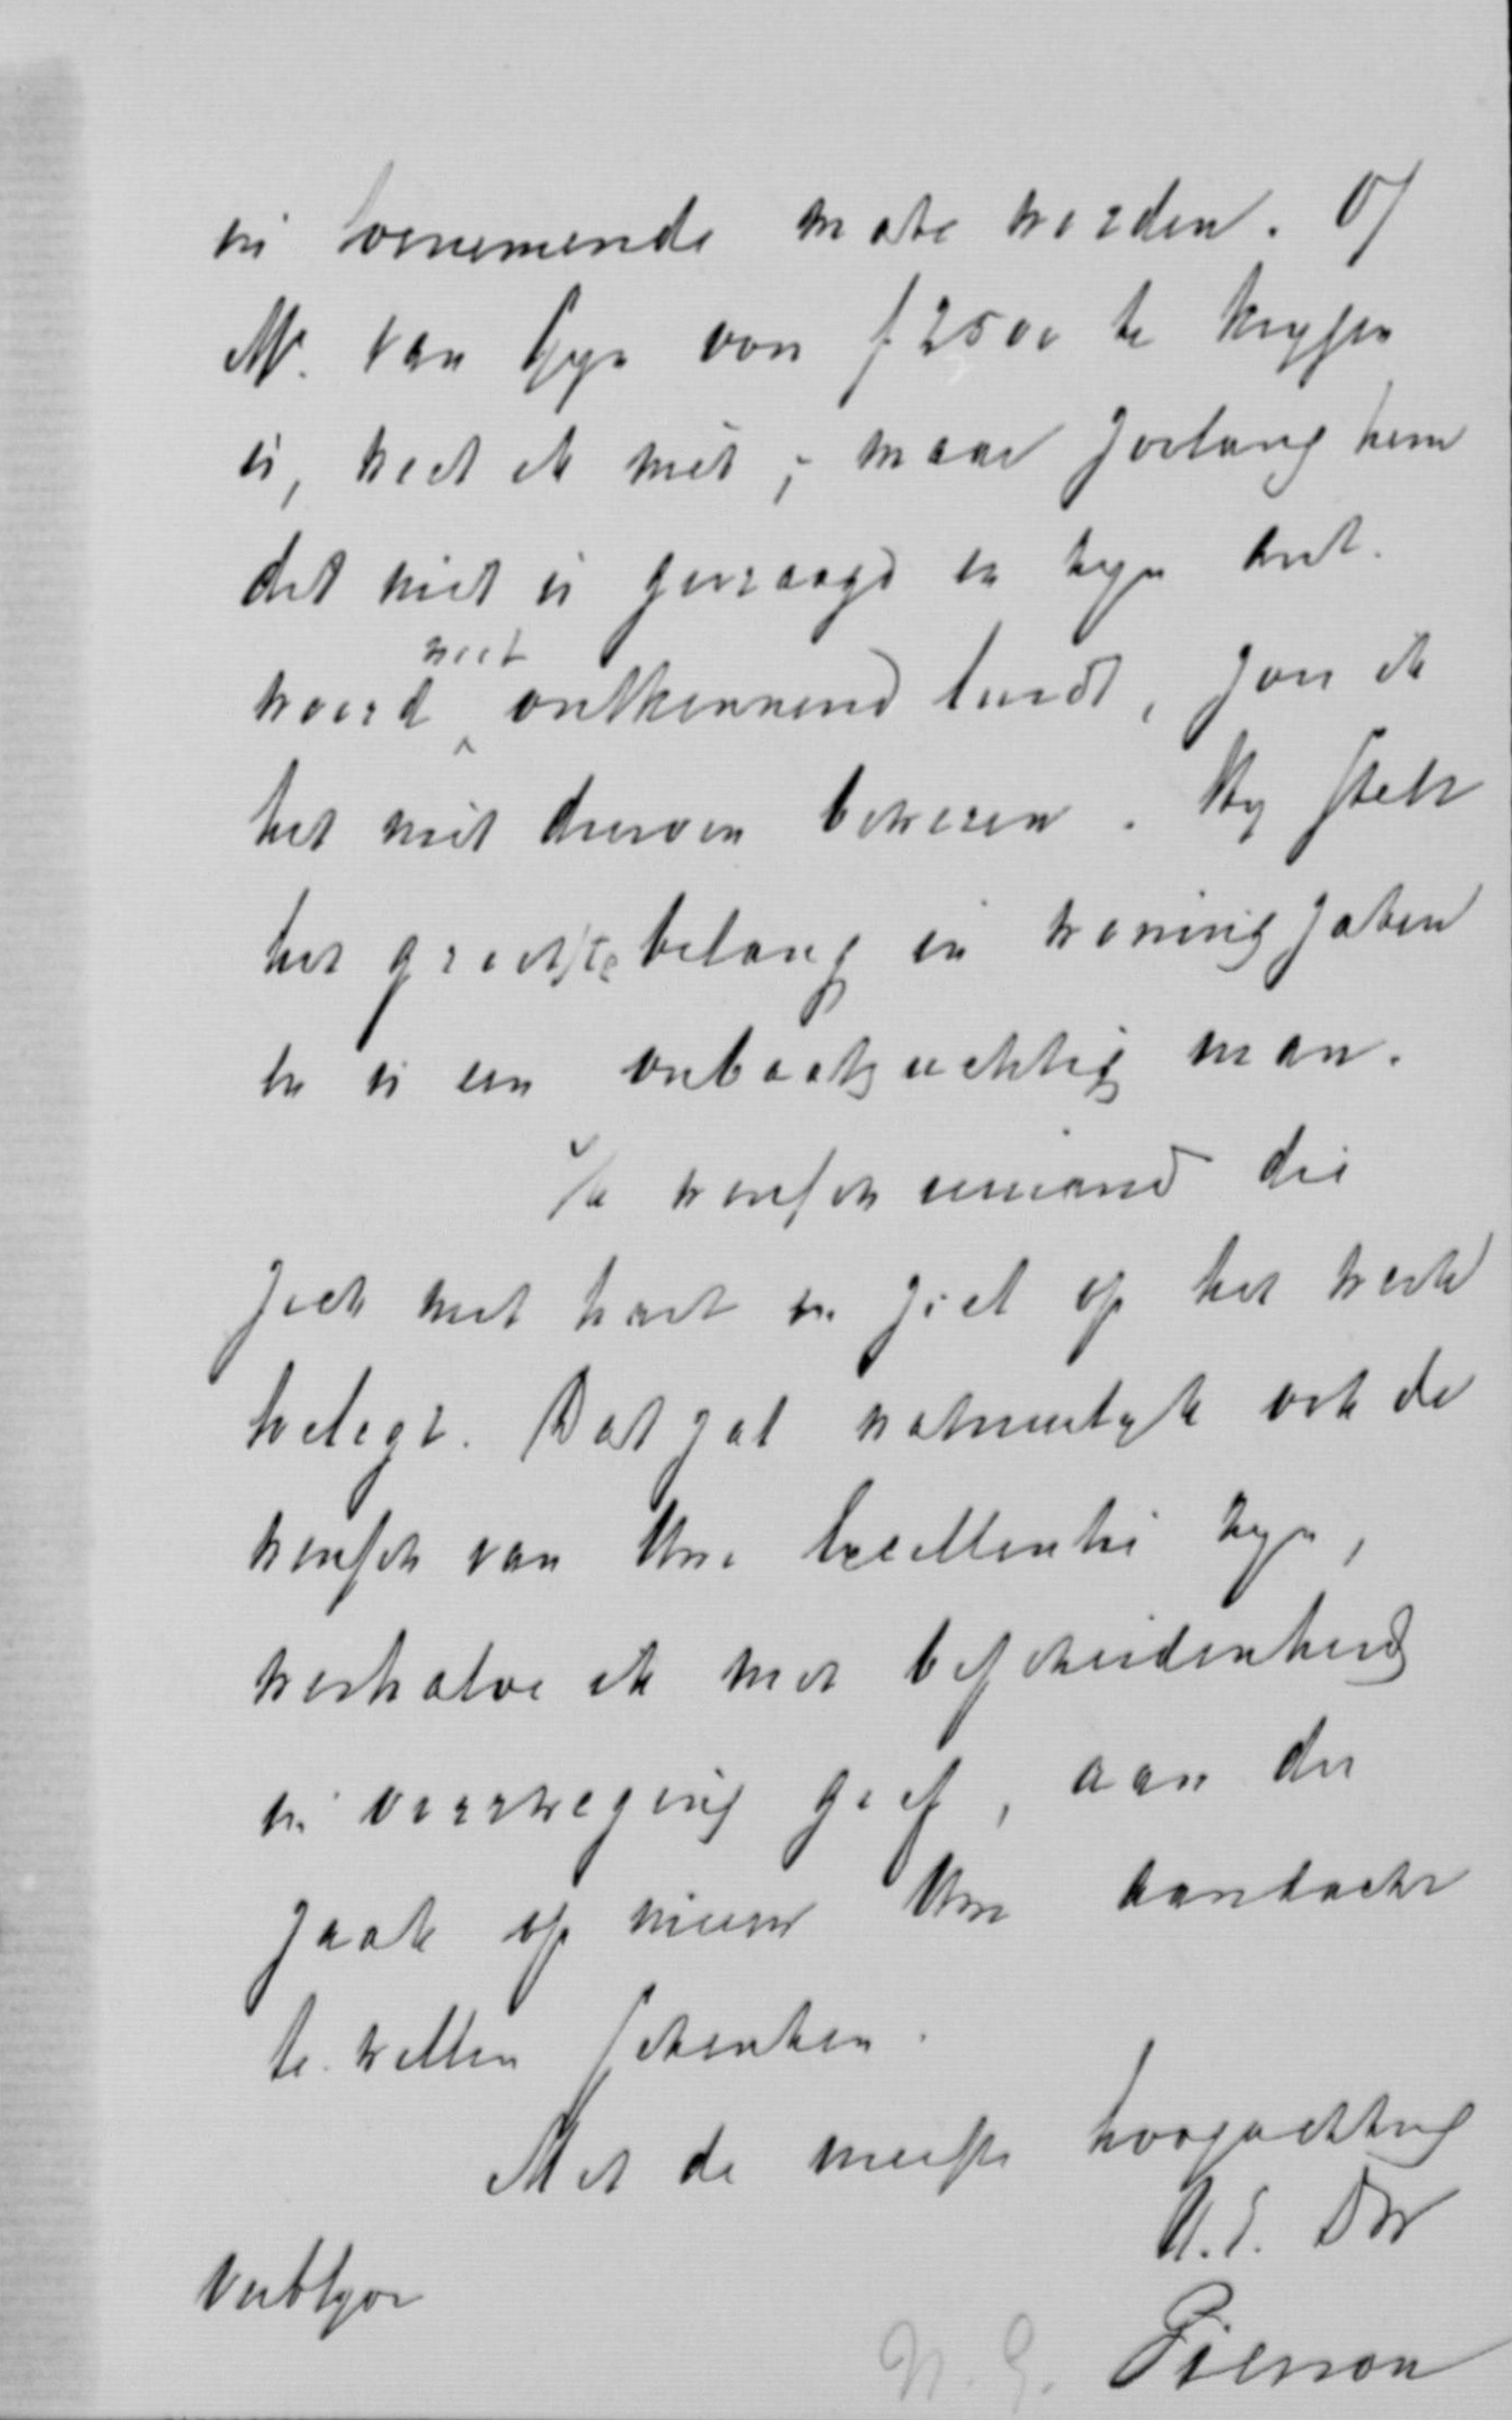 in toenemende mate worden. Of
Mr. van Gyn voor f 2500 te krygen
is, weet ik niet; maar zoolang hem
dit niet is gevraagd en zyn ant-
woord niet ontkennend luidt, zou ik
het niet durven beweren. Hy stelt
het grootste belang in woningzaken
en is een onbaatzuchtig man.
Ik wensch iemand die
zich met hart en ziel op het werk
toelegt. Dat zal natuurlyk ook de
wensch van Uwe Excellentie zyn,
weshalve ik met bescheidenheid
in overweging geef, aan de
zaak op nieuw Uwe aandacht
te willen schenken.
Met de meeste hoogachting
verblyve
U.E. Dw
N. G. Pierson